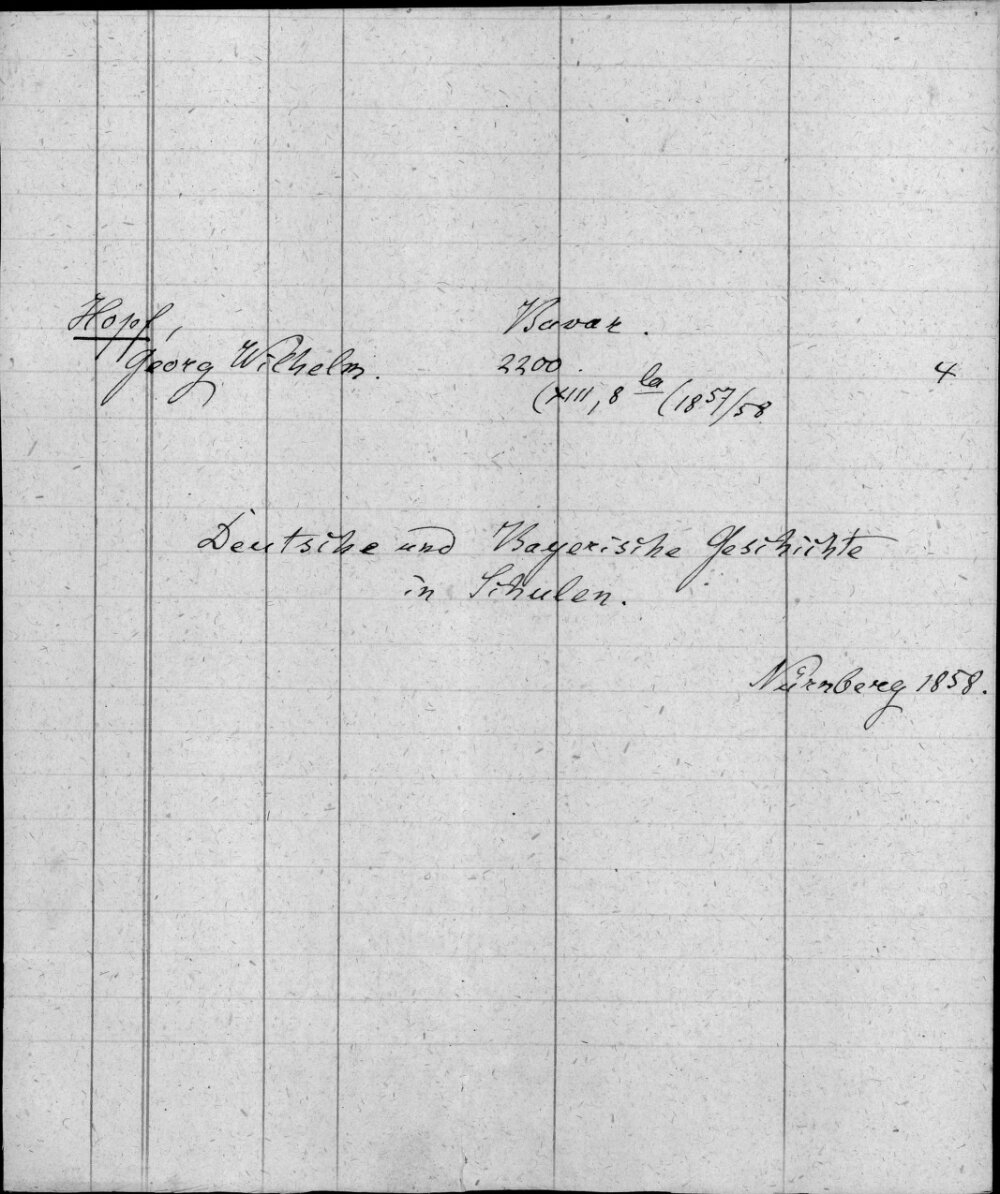 Hopf,
Georg Wilhelm.
Bavar.
2200.
(XIII, 8 la (1857/58
4
Deutsche und Bayerische Geschichte
in Schulen.
Nürnberg 1858.